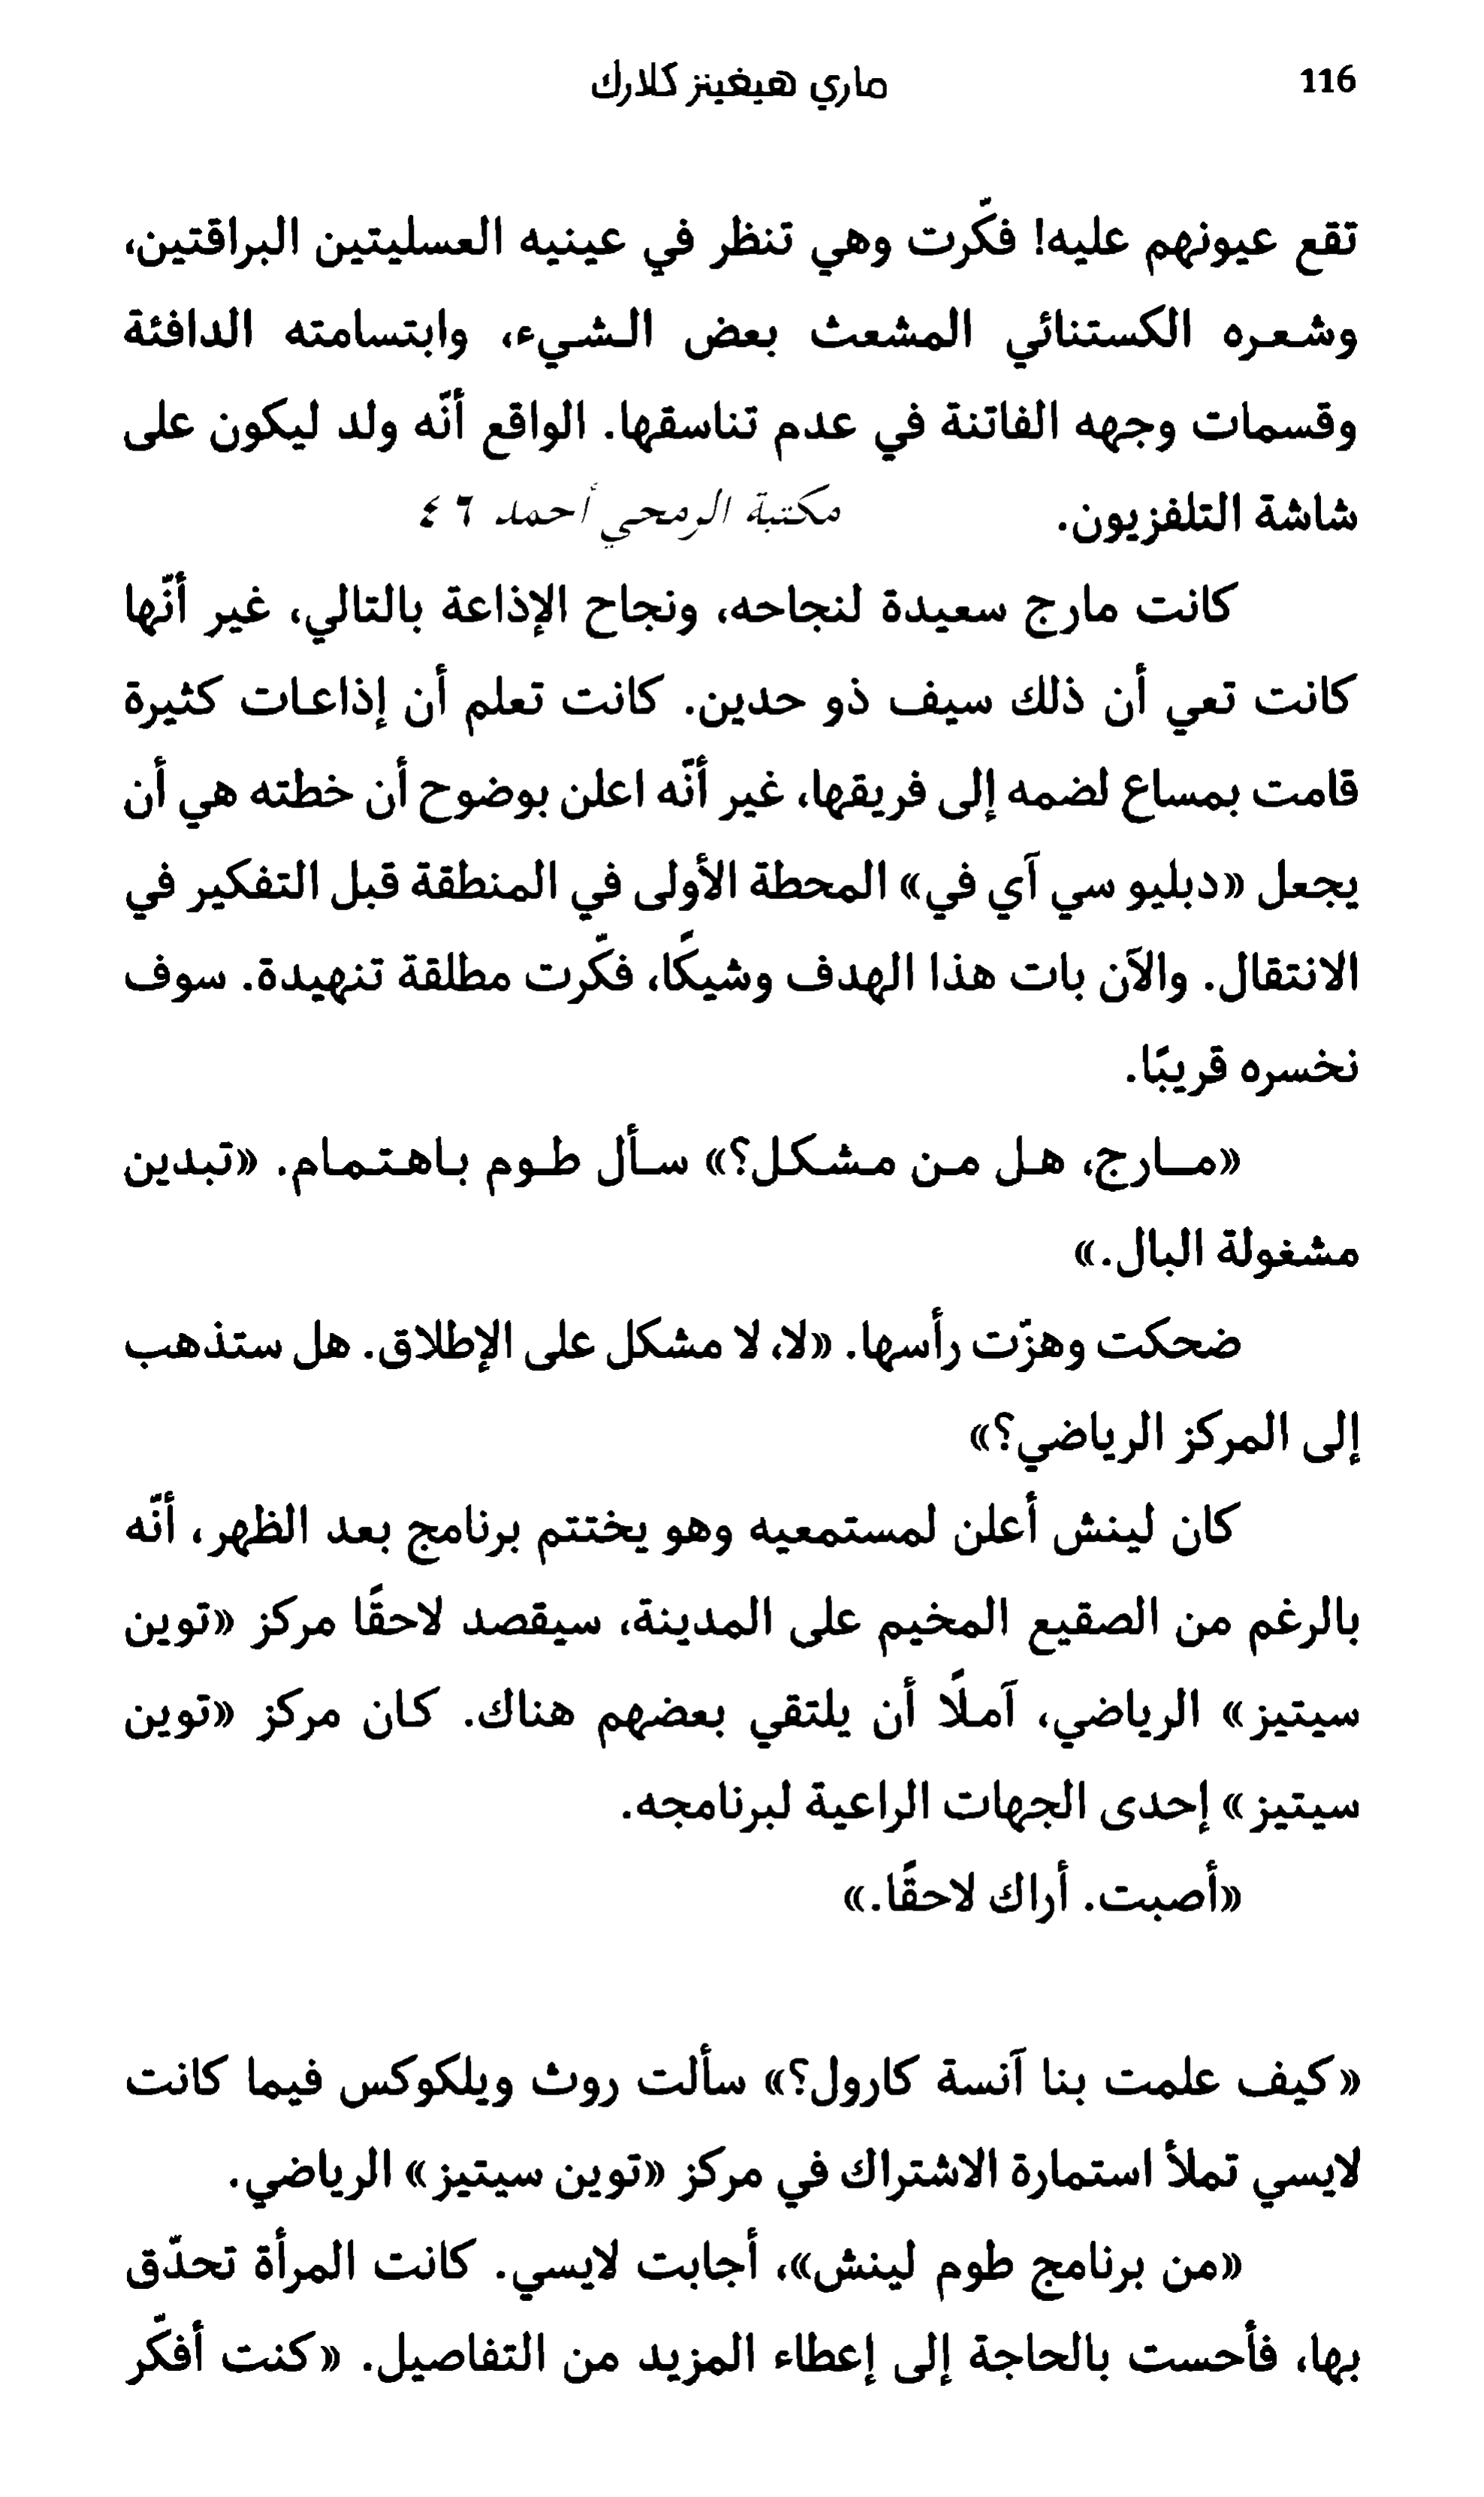 116
ماري هيغينز كلارك
تقع عيونهم عليه! فكّرت وهي تنظر في عينيه العسليتين البراقتين،
وشعره الكستنائي المشعث بعض الشيء، وابتسامته الدافئة
وقسمات وجهه الفاتنة في عدم تناسقها. الواقع أنّه ولد ليكون على
شاشة التلفزيون.
مكتبة الرمحي أحمد ٤٦
كانت مارج سعيدة لنجاحه، ونجاح الإذاعة بالتالي، غير أنّها
كانت تعي أن ذلك سيف ذو حدين. كانت تعلم أن إذاعات كثيرة
قامت بمساع لضمه إلى فريقها، غير أنّه اعلن بوضوح أن خطته هي أن
يجعل «دبليو سي آي في» المحطة الأولى في المنطقة قبل التفكير في
الانتقال. والآن بات هذا الهدف وشيكًا، فكّرت مطلقة تنهيدة. سوف
نخسره قريبًا.
«مارج، هل من مشكل؟» سأل طوم باهتمام. «تبدين
مشغولة البال.»
ضحكت وهزّت رأسها. «لا، لا مشكل على الإطلاق. هل ستذهب
إلى المركز الرياضي؟»
كان لينش أعلن لمستمعيه وهو يختتم برنامج بعد الظهر، أنّه
بالرغم من الصقيع المخيم على المدينة، سيقصد لاحقًا مركز «توين
سيتيز» الرياضي، آملًا أن يلتقي بعضهم هناك. كان مركز «توين
سيتيز» إحدى الجهات الراعية لبرنامجه.
«أصبت. أراك لاحقًا.»
«كيف علمت بنا آنسة كارول؟» سألت روث ويلكوكس فيما كانت
لايسي تملأ استمارة الاشتراك في مركز «توين سيتيز» الرياضي.
«من برنامج طوم لينش»، أجابت لايسي. كانت المرأة تحدّق
بها، فأحست بالحاجة إلى إعطاء المزيد من التفاصيل. «كنت أفكّر